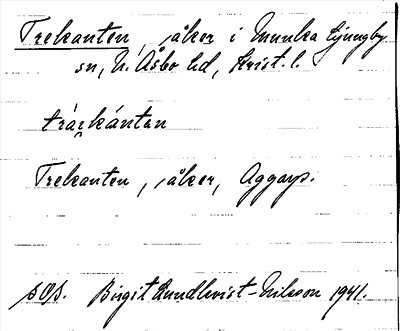 Trekanten, åker i Munka Ljungby
sn, N. Åsbo hd, Krist. l.
tráękántən
Trekanten, åker, Aggarp.
SOS. Birgit Lundkvist-Nilsson 1941.